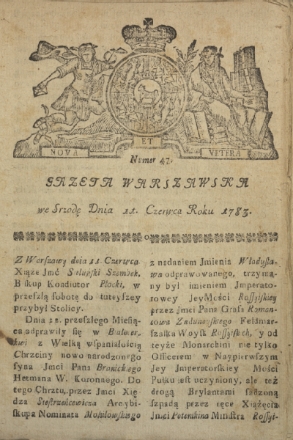 NOVA ET VETERA
Numer 47.
GAZETA WARSZAWSKA
we Srzodę Dnia 11. Czerwca Roku 1783.
Z Warszawy dnia 11. Czerwca.
Xiąże Jmć
Biskup Koadiutor Płocki, w
przeszłą sobotę do tuteyszey
przybył Stolicy.
Dnia 1. przeszłego Miesią-
ca odprawiły się w
z Wielką wspaniałością
Chrzciny nowo narodzonego
syna Jmci Pana Branickiego
Hetmana W. Koronnego. Do
tego Chrztu, przez Jmci Xię-
dza Arcybi-
skupa Nominata
z nadaniem Imienia Władysła-
wa odprawowanego, trzyma-
ny był imieniem Imperato-
rowey JeyMości Rossyiskiey
przez Jmci Pana Grafa Roman-
zowa Zadunayskiego Feldmar-
szałka Woysk Rossyisk, y od
teyże Monarchini nie tylko
Officerem w Naypierwszym
Jey Imperatorskiey Mości
Pułku iest uczyniony, ale też
drogą Brylantami sadzoną
szpadą przez ręce Xiążęcia
Jmci Potemkina Ministra Rossyi-